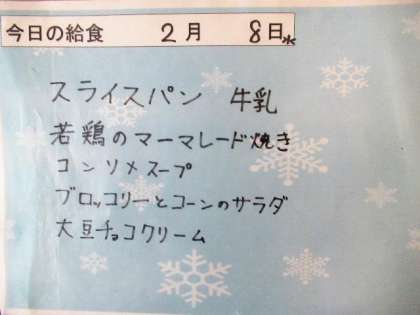 今日の給食 2月 8日水
スライスパン 牛乳
若鶏のマーマレード焼き
コンソメスープ
ブロッコリーとコーンのサラダ
大豆チョコクリーム